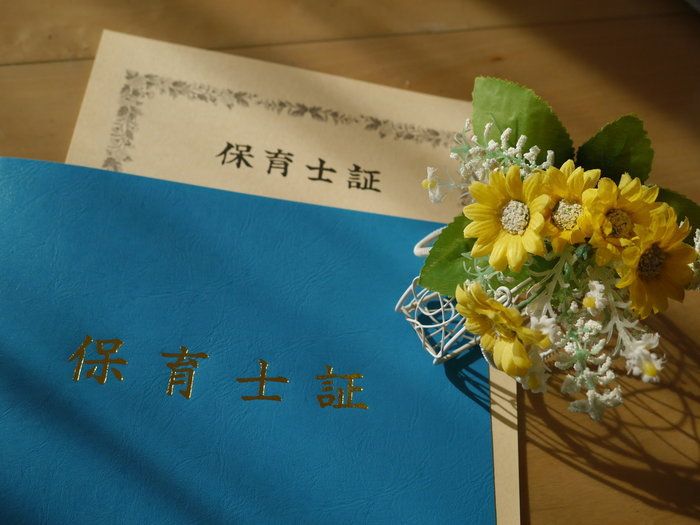 保育士証
保育士証